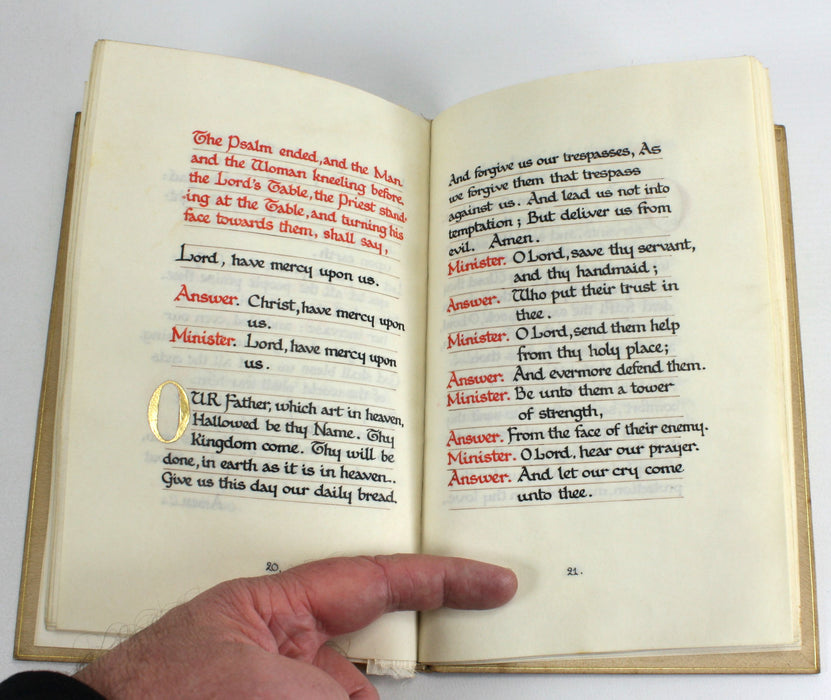 The Psalm ended, and the Man
and the Woman kneeling before
the Lord's Table, the Priest stand-
-ing at the Table, and turning his
face towards them, shall say,
Lord, have mercy upon us.
Answer. Christ, have mercy upon
us.
Minister. Lord, have mercy upon
us.
OUR Father, which art in heaven,
Hallowed be thy Name. Thy
kingdom come. Thy will be
done, in earth as it is in heaven..
Give us this day our daily bread.
20.
And forgive us our trespasses, As
we forgive them that trespass
against us. And lead us not into
temptation; But deliver us from
evil. Amen.
Minister. O Lord, save thy servant,
and thy handmaid;
Answer. Who put their trust in
thee.
Minister. O Lord, send them help
from thy holy place;
Answer. And evermore defend them.
Minister. Be unto them a tower
of strength,
Answer. From the face of their enemy.
Minister. O Lord, hear our prayer.
Answer. And let our cry come
unto thee.
21.